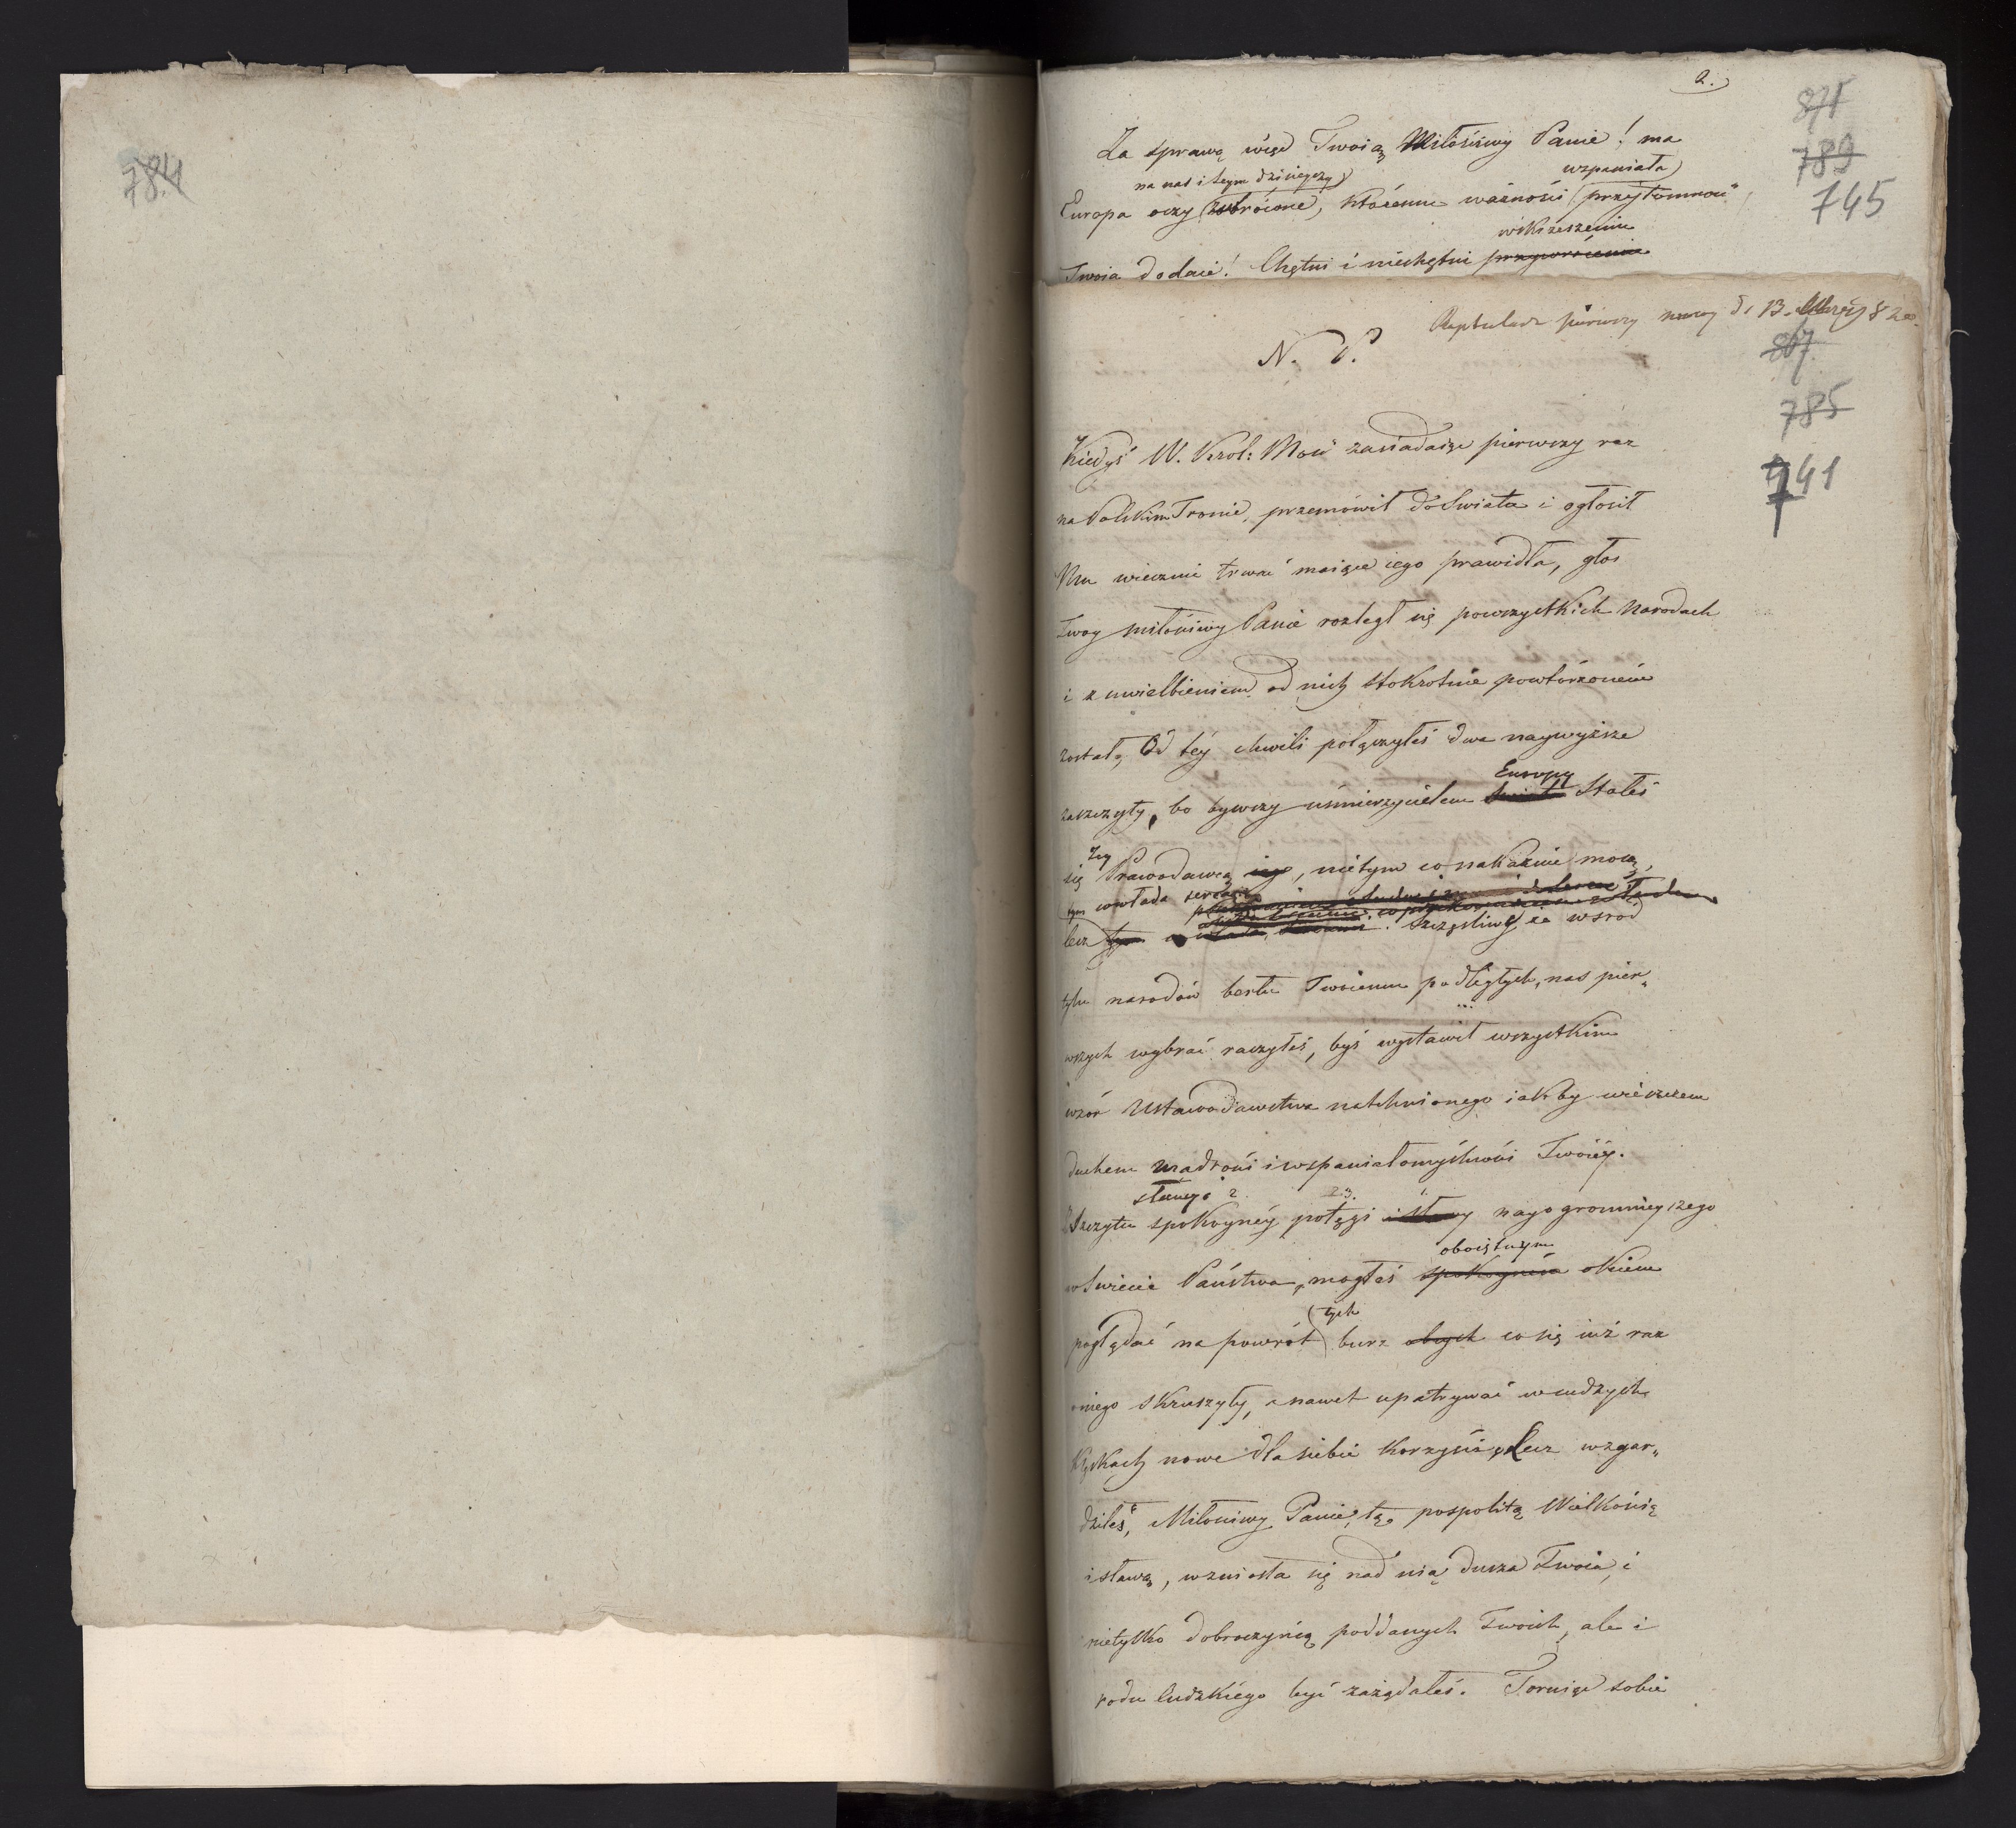 784
2.
871
789
745
Za sprawą więc Twoią Miłościwy Panie! ma
na nas i seym dzisieyszy wspaniała
Europa oczy zwrócone, któremu ważności przytomność
wskrzeszenie
Twoia dodaie! Chętni i niechętni przywrócenie
pierwszy mowy d. 13. 820.
N. P.
867
785
741
Kiedyś W. Krol: Mość zasiadaiąc pierwszy raz
na Polskim Tronie, przemówił do Swiata i ogłosił
Mu wiecznie trwać maiące iego prawidła, głos
Twoy miłościwy Panie rozległ się po wszystkich Narodach
i z uwielbieniem od nich stokrotnie powtórzonem
został, Od téy chwili połączyłeś dwa naywyższe
Europy
zaszczyty, bo bywszy uśmierzycielem Swiata Stałeś
Jey
się Prawodawcą iego, nie tym co nakazuie mocą,
tym co włada sercami
lecz tym co włada sercami. Szczęśliwy że wsrod
tylu narodów berłu Twoiemu podległych, nas pier„
wszych wybrać raczyłeś, byś wystawił wszystkim
wzór Ustawodawstwa natchnionego iakby wieszczem
duchem mądrości i wspaniałomyślności Twoiéy.
sławnego 2. 3.
Szczytu spokoynéy potęgi i sławy nayogromnieyszego
oboiętnym
w Swiecie Państwa, mogłeś spokoynem okiem
tych
poglądać na powrót burz obcych co się iuż raz
o niego skruszyły, a nawet upatrywać w cudzych
klęskach nowe dla siebie korzyści, Lecz wzgar„
dziłeś, Miłościwy Panie, tą pospolitą Wielkością
i sławą, wzniosła się nad nią dusza Twoia, i
nietylko dobroczyńcą poddanych Twoich, ale i
rodu ludzkiego być zażądałeś. Toruiąc sobie